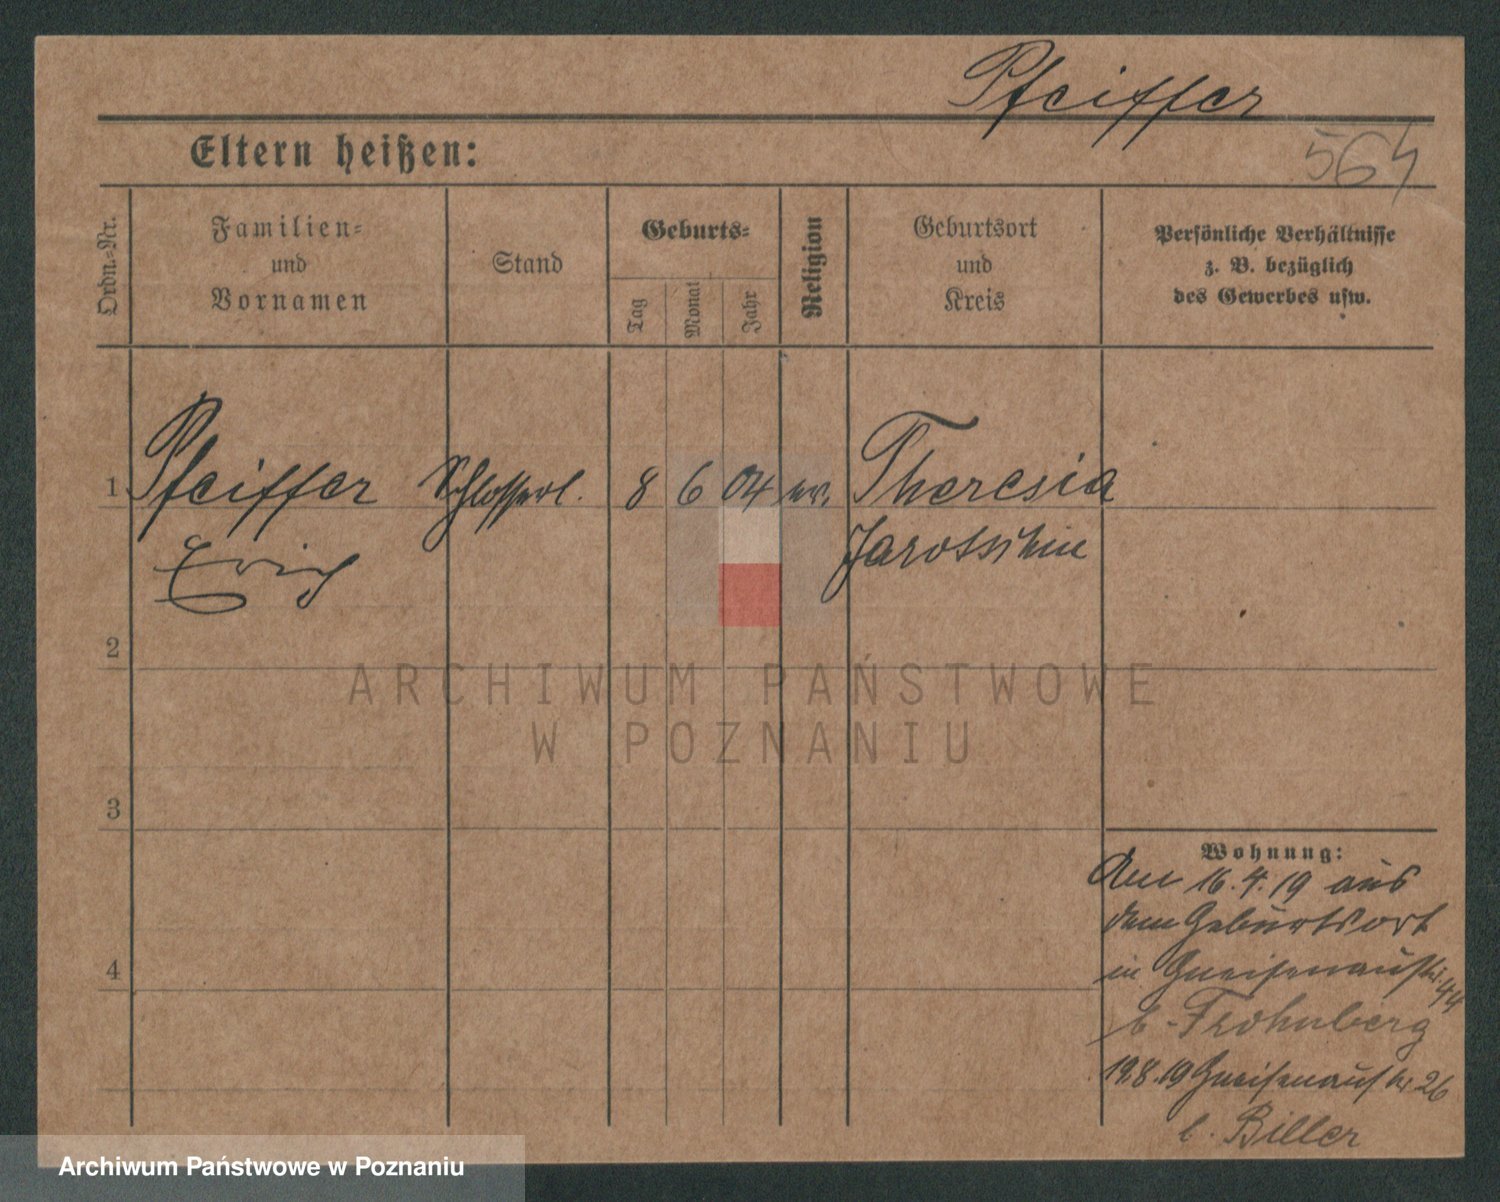 Pfeiffer
Eltern heißen:
564
Ordn.-Nr.
Familien-
und
Vornamen
Stand
Geburts-
Tag
Monat
Jahr
Religion
Geburtsort
und
Kreis
Persönliche Verhältnisse
z. B. bezüglich
des Gewerbes usw.
1 Pfeiffer Schlosserl. 8 6 04 ev. Theresia
Erich Jarotschin
2
ARCHIWUM PAŃSTWOWE
W POZNANIU
3
Wohnung:
Am 16.4.19 aus
dem Geburtsort
4
in Gneisenaustr. 44
b. Frohnberg
19.8.19 Gneisenaustr 26
b. Biller
Archiwum Państwowe w Poznaniu